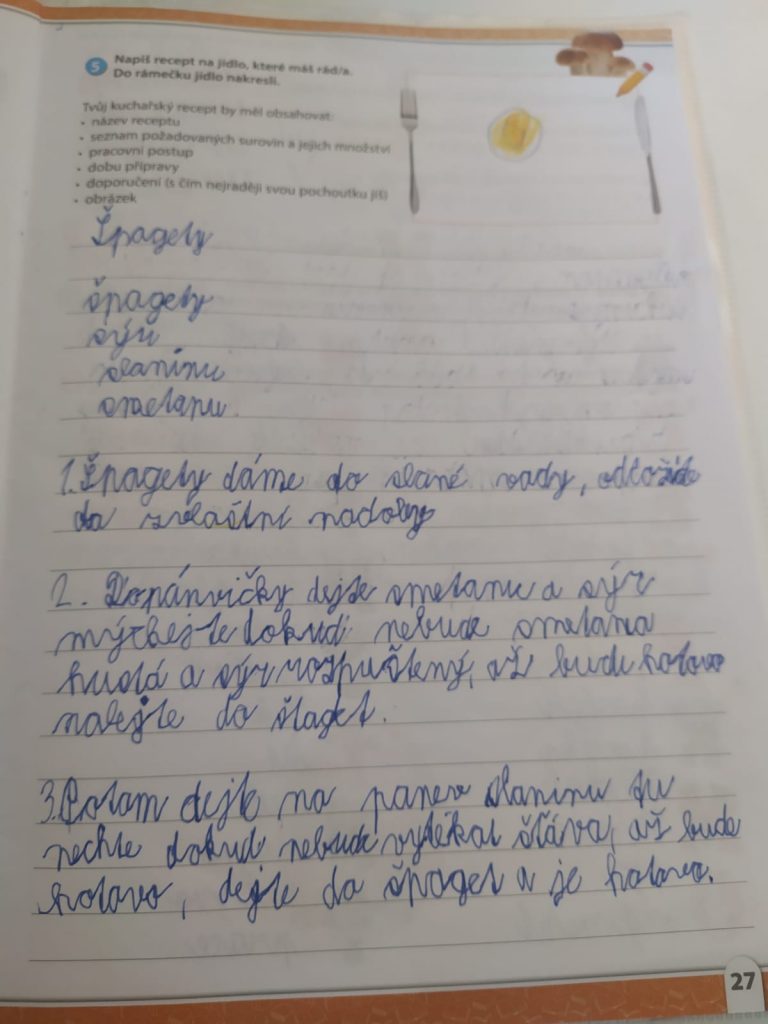 5 Napiš recept na jídlo, které máš rád/a.
Do rámečku jídlo nakresli.
Tvůj kuchařský recept by měl obsahovat:
• název receptu
• seznam požadovaných surovin a jejich množství
• pracovní postup
• dobu přípravy
• doporučení (s čím nejraději svou pochoutku jíš)
• obrázek
Špagety
špagety
sýr
slaninu
smetanu.
1. Špagety dáme do slané vady, odložte
do zvlaštní nadoby
2. Do pánvičky dejte smetanu a sýr
dokud nebude smetana
hustá a sýr rozpuštěný, až bude hotovo
nalejte do špaget.
3. Potom dejte na panev slaninu tu
nechte dokud nebude vytékat šťáva, až bude
hotovo, dejte do špaget a je hotovo.
27